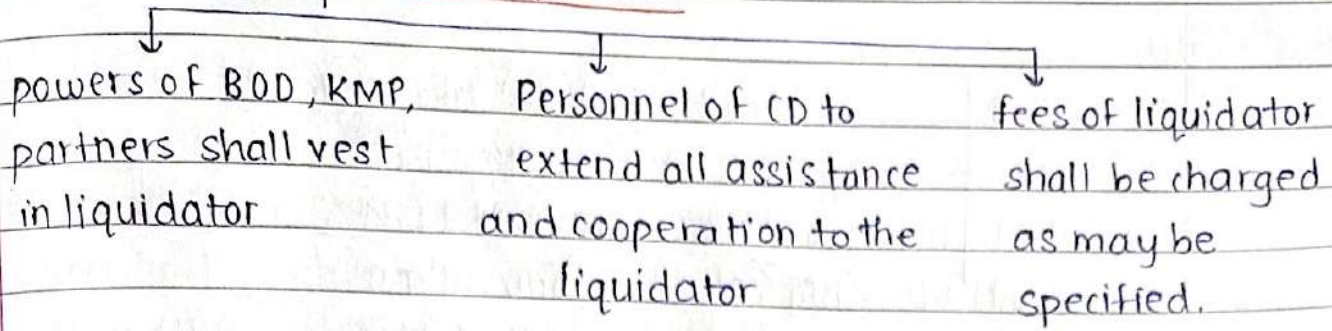 powers of BOD, KMP,
partners shall vest
in liquidator
Personnel of CD to
extend all assistance
and cooperation to the
liquidator
fees of liquidator
shall be charged
as may be
specified.